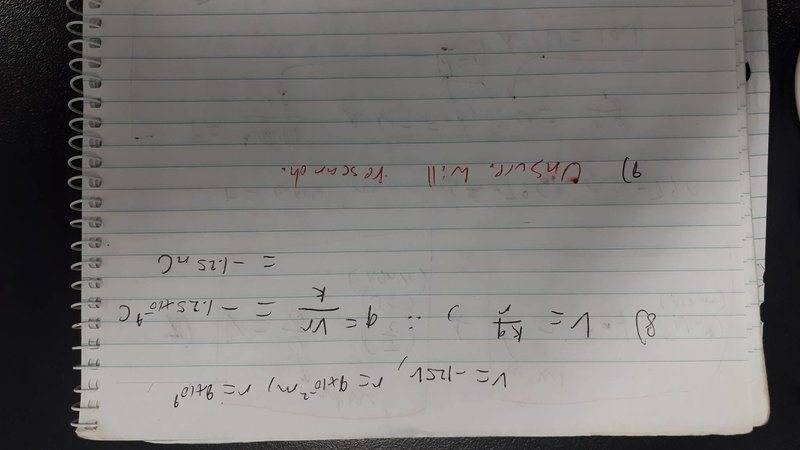 V = -125V, r = 9x10⁻²m, r = 9x10⁹
8) V = kq/r , ∴ q = Vr/k = -1.25x10⁻⁹ C
= -1.25 nC
9) Unsure. Will research.